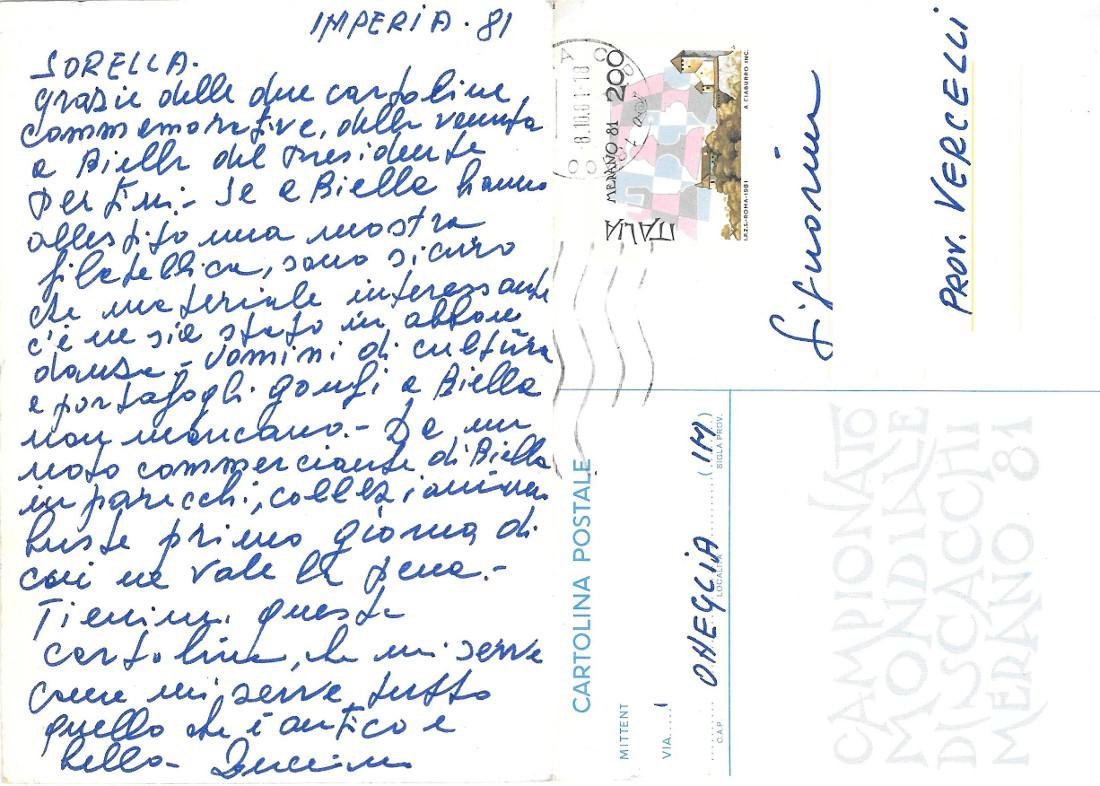 IMPERIA. 81
SORELLA.
grazie delle due cartoline
commemorative, della venuta
a Biella del Presidente
Pertini.- Se a Biella hanno
allestito una mostra
filatellica, sono sicuro
che materiale interessante
c'è ne sia stato in abbon
danza.- Uomini di cultura
e portafogli gonfi a Biella
non mancano.- Da un
noto commerciante di Biella
in parecchi,
buste primo giorno di
cui ne vale la pena.-
Tienimi questa
cartolina, che mi serve
come mi serve tutto
quello che è antico e
bello-
8.10.81-18
ITALIA MERANO 81 200
A. CIABURRO INC.
I.P.Z.S.-ROMA-1981
Signorina
PROV. VERCELLI
CARTOLINA POSTALE
MITTENT
VIA
ONEGLIA (IM)
C.A.P. LOCALITÀ SIGLA PROV.
CAMPIONATO
MONDIALE
DI SCACCHI
MERANO 81